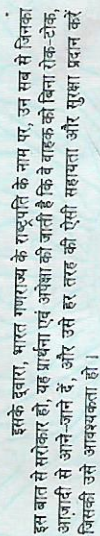 इसके द्वारा, भारत गणराज्य के राष्ट्रपति के नाम पर, उन सब से जिनका
इस बात से सरोकार हो, यह प्रार्थना एवं अपेक्षा की जाती है कि वे वाहक को बिना रोक-टोक,
आज़ादी से आने-जाने दें, और उसे हर तरह की ऐसी सहायता और सुरक्षा प्रदान करें
जिसकी उसे आवश्यकता हो।